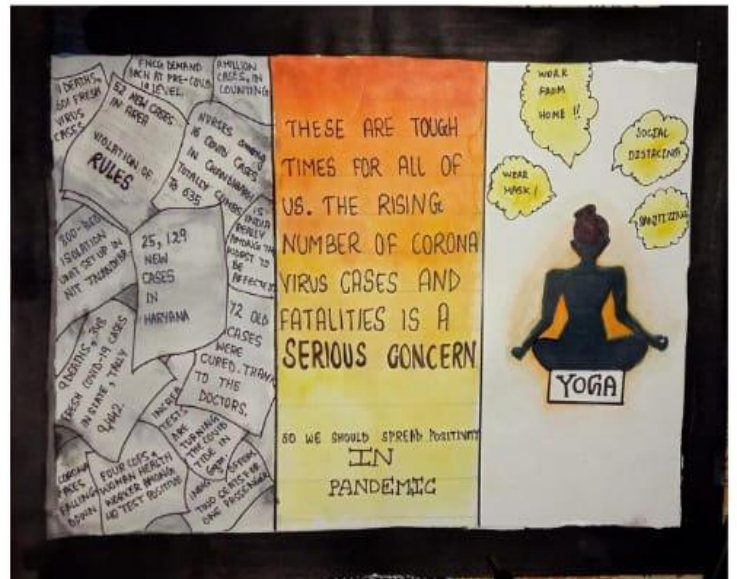 11 DEATHS,
601 FRESH
VIRUS
CASES
FMCG DEMAND
BACK AT PRE-COVID
19 LEVEL.
A MILLION
CASES, IN
COUNTING
52 NEW CASES
IN AREA
VIOLATION OF
RULES
NURSES among
16 COVID CASES
IN CHANDIGARH
TOTALLY CLIMBS
TO 635
IS
INDIA
REALLY
AMONG THE
WORST TO
BE
AFFECTED
ISOLATION
UNIT SET UP IN
NIT
25,129
NEW
CASES
IN
HARYANA
72 OLD
CASES
WERE
CURED. THANK
TO THE
DOCTORS.
9 DEATHS, 348
FRESH COVID-19 CASES
IN STATE, TALLY
9,442.
TESTS
ARE
TURNING
THE COVID
TIDE IN
CORONA
CASES
FALLING
DOWN
FOUR COPS, a
WOMAN HEALTH
WORKER AMONG
40 TEST POSITIVE
TWO SEATS FOR
ONE PASSENGER
THESE ARE TOUGH
TIMES FOR ALL OF
US. THE RISING
NUMBER OF CORONA
VIRUS CASES AND
FATALITIES IS A
SERIOUS CONCERN
SO WE SHOULD SPREAD POSITIVITY
IN
PANDEMIC
WORK
FROM
HOME !!
SOCIAL
DISTACING
WEAR
MASK !
SANITIZING
YOGA